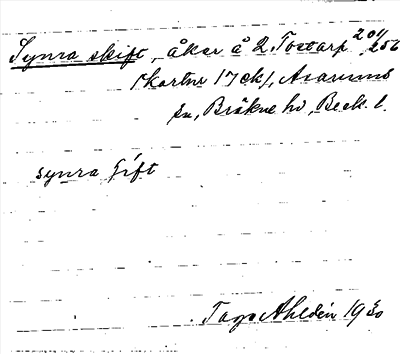 Synra skift, åker å 2 Tostarp 201/256
(kartnr 17 ek), Asarums
sn, Bräkne hd, Blek. l.
synra sjift
Tage Ahldén 1930